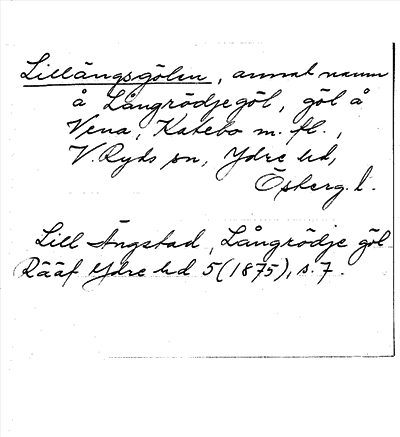 Lillängsgölen, annat namn
å Långrödjegöl, göl å
Vena, Katebo m. fl.,
V. Ryds sn, Ydre hd,
Östergl. l.
Lill Ängstad, Långrödje göl
Rääf Ydre hd 5(1875), s. 7.